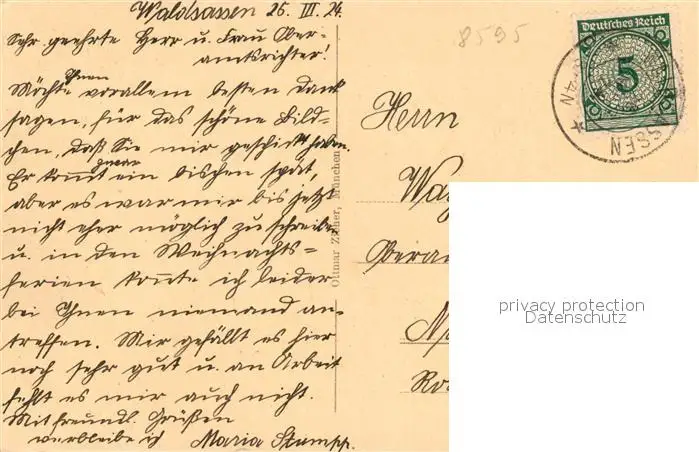 Waldsassen 25. III. 24.
Sehr geehrte Herr u. Frau Ober-
amtsrichter!
Möchte Ihnen vorallem besten Dank
sagen, für das schöne Bild-
chen, daß Sie mir geschickt haben.
Er kommt zwar ein bischen spät,
aber es war mir bis jetzt
nicht eher möglich zu schreiben
u. in den Weihnachts-
ferien konnte ich leider
bei Ihnen niemand an-
treffen. Mir gefällt es hier
noch sehr gut u. an Arbeit
fehlt es mir auch nicht.
Mit freundl. Grüßen
verbleibe ich Maria Stumpp.
Ottmar Zieher, München
8595
Deutsches Reich
5
SSEN
Herrn
Oberam
privacy protection
Datenschutz